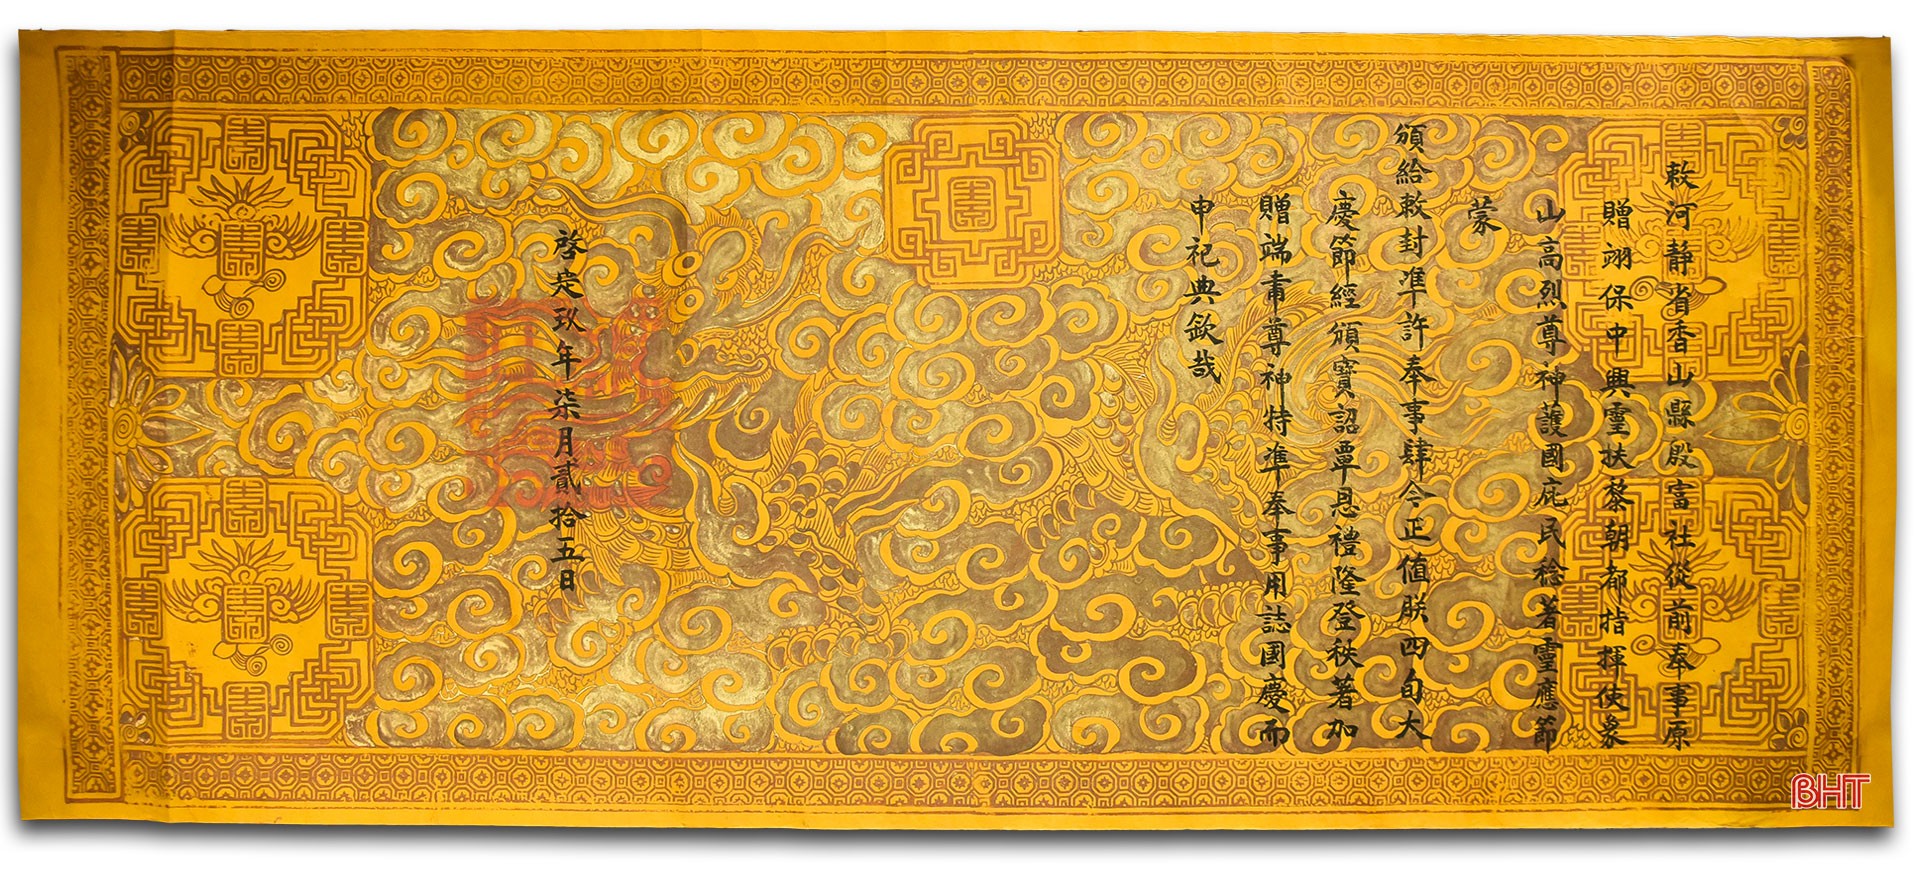 敕河静省香山縣殷富社從前奉事原
贈翊保中興靈扶黎朝都指揮使象
山高烈尊神護國庇民稔著靈應節
蒙
頒給敕封準許奉事肆今正值朕四旬大
慶節經頒寶詔覃恩禮隆登秩著加
贈端肅尊神特準奉事用誌國慶而
申祀典欽哉
啓定玖年柒月貳拾五日
BHT